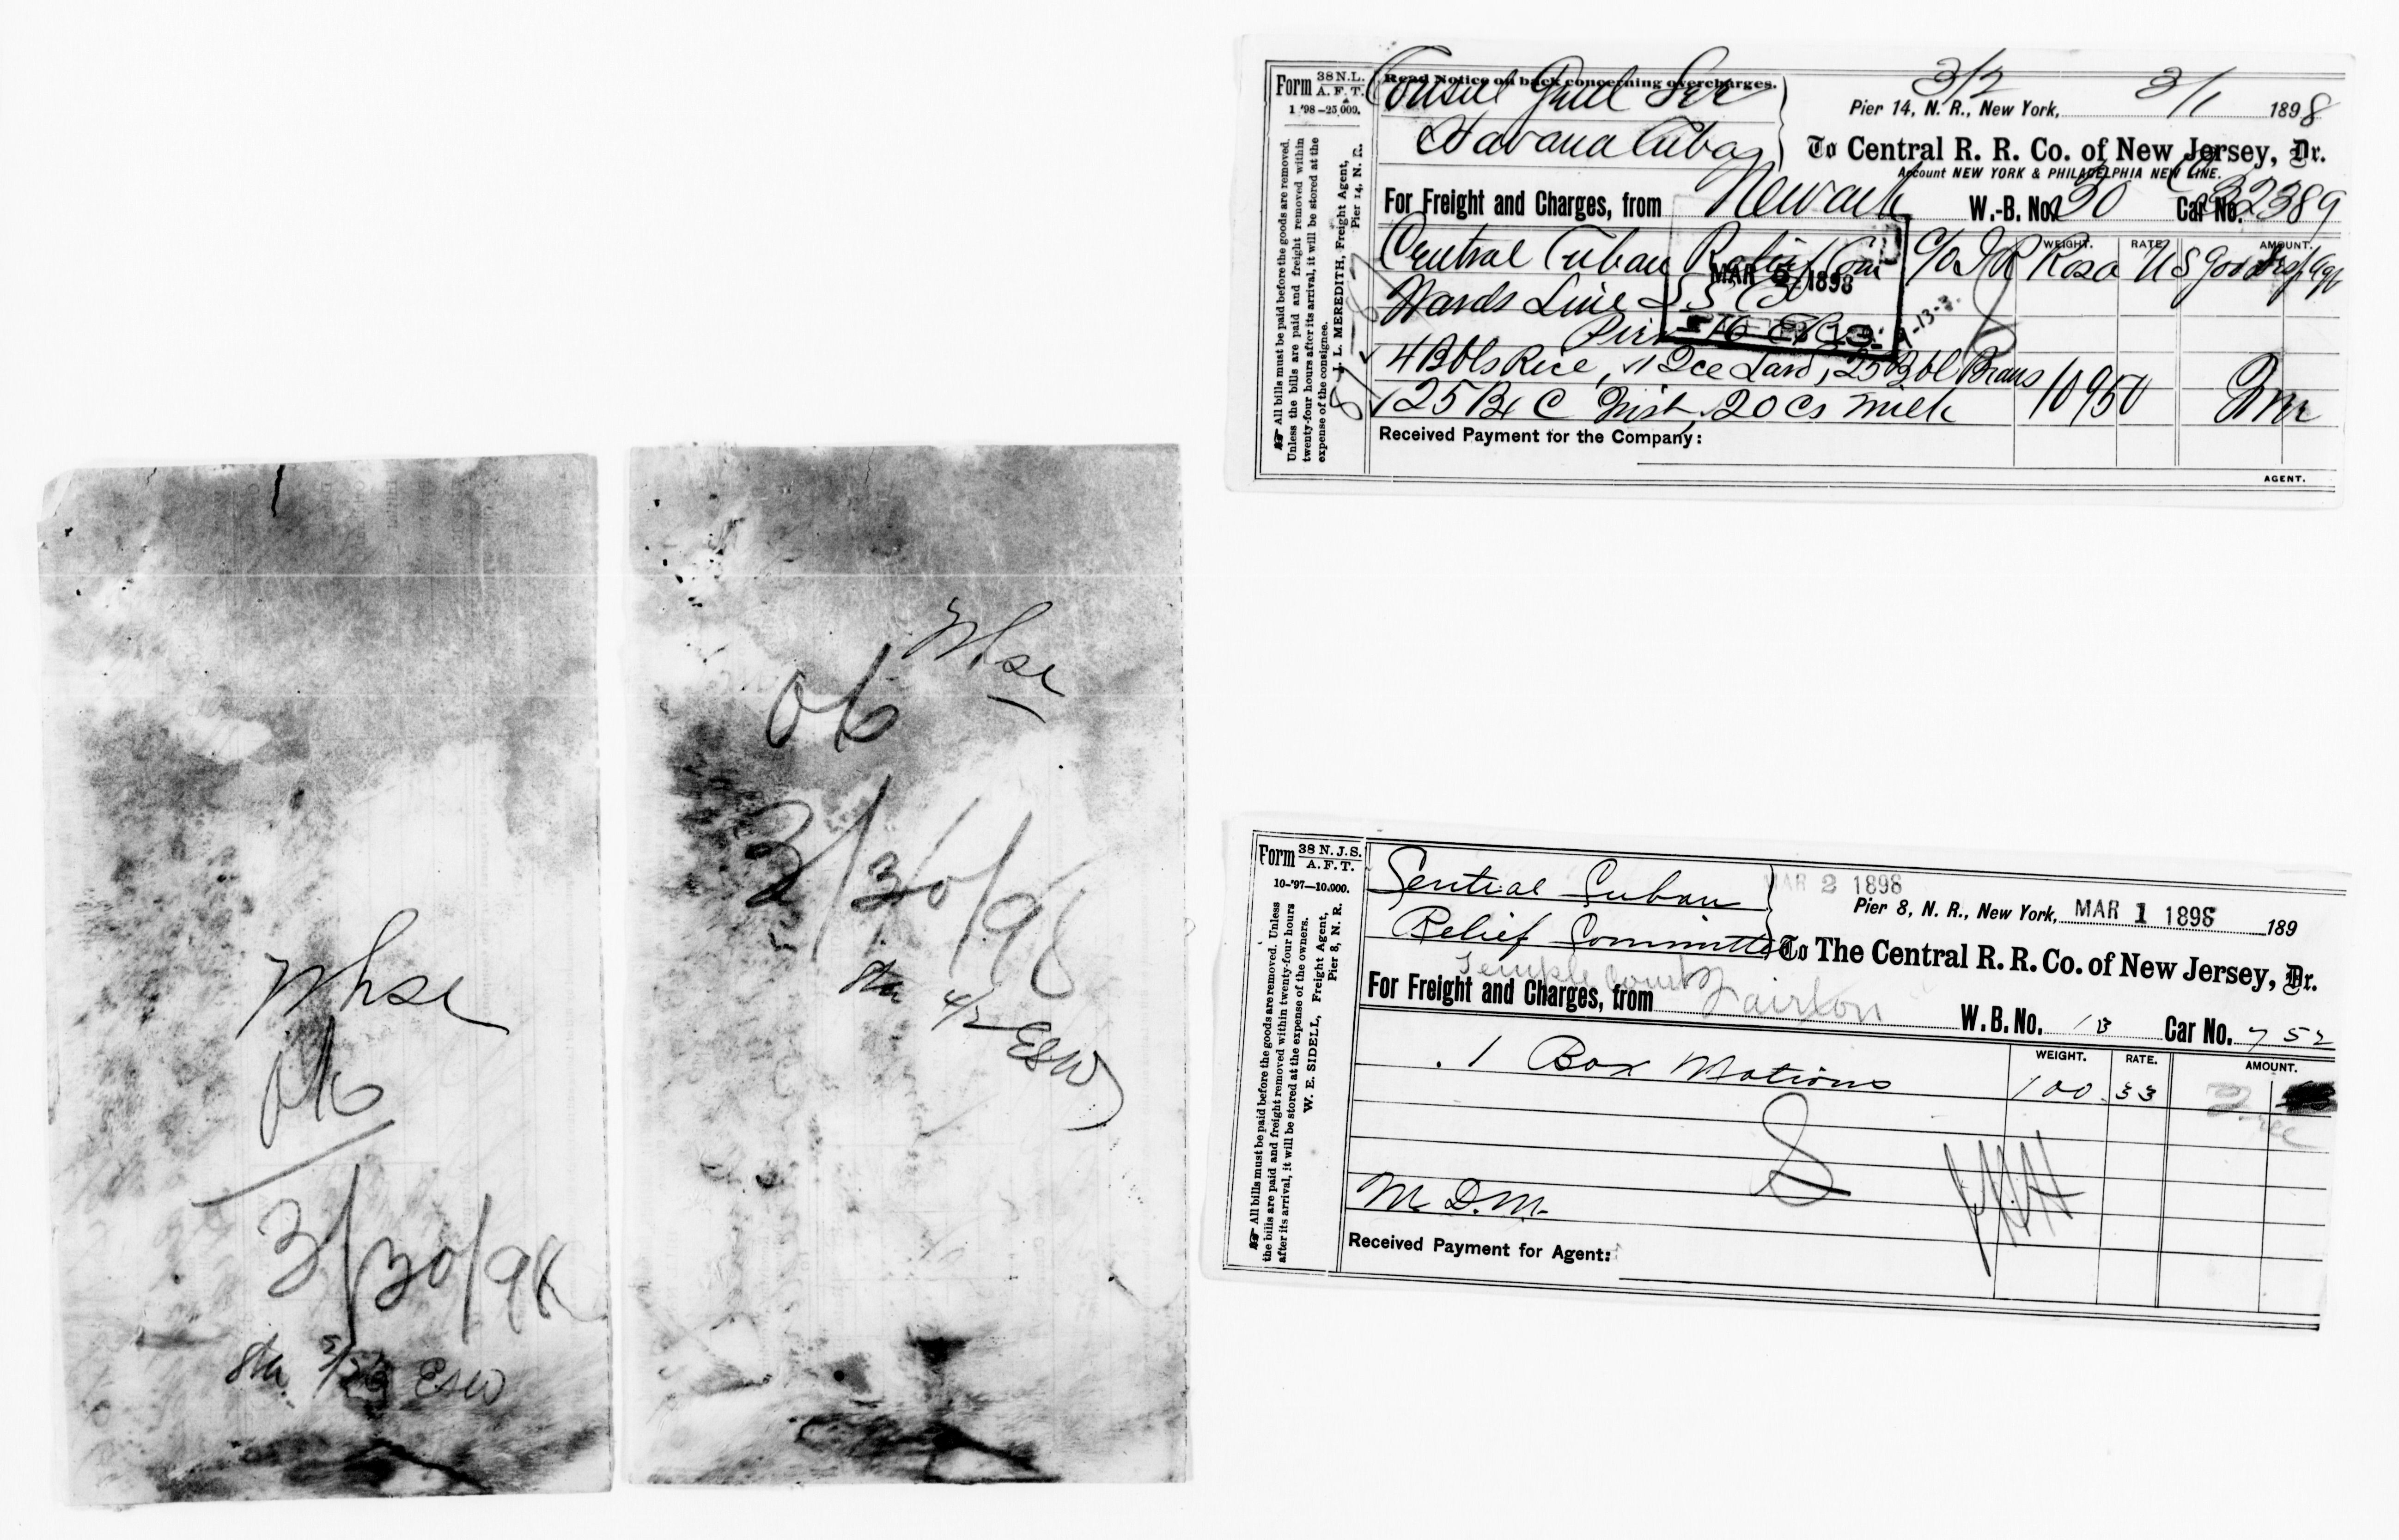 Whse
ok
3/30/98
Sta. 3/23 ESW
Whse
ok
3/30/98
Sta 4/2 ESW
Form 38 N.L. A. F. T.
1 '98—25,000.
☞ All bills must be paid before the goods are removed.
Unless the bills are paid and freight removed within
twenty-four hours after its arrival, it will be stored at the
expense of the consignee.
J. L. MEREDITH, Freight Agent,
Pier 14, N. R.
Read Notice on back concerning overcharges.
Consul Genl
Havana Cuba
3/2
Pier 14, N. R., New York, 3/1 1898
To Central R. R. Co. of New Jersey, Dr.
Account NEW YORK & PHILADELPHIA NEW LINE.
For Freight and Charges, from Newark W.-B. No. 230 Car No. 32389
WEIGHT. RATE AMOUNT.
Central Cuban Relief Com c/o J R Rosa U S
MAR 1898
Wards Line S S Co
Pier 16 E R
4 Bbls Rice, 1 Tce Lard, 25 Bbl Beans
125 Bx C Fish, 20 Cs Milk 10950
Received Payment for the Company:
AGENT.
Form 38 N. J. S. A. F. T.
10-'97—10.000.
☞ All bills must be paid before the goods are removed. Unless
the bills are paid and freight removed within twenty-four hours
after its arrival, it will be stored at the expense of the owners.
W. E. SIDELL, Freight Agent,
Pier 8, N. R.
Central Cuban
Relief Committee
Temple Court
MAR 2 1898
Pier 8, N. R., New York, MAR 1 1898 189
To The Central R. R. Co. of New Jersey, Dr.
For Freight and Charges, from Fairton W. B. No. 13 Car No. 752
WEIGHT. RATE. AMOUNT.
1 Box Notions 100 33
M. D. M.
Received Payment for Agent: